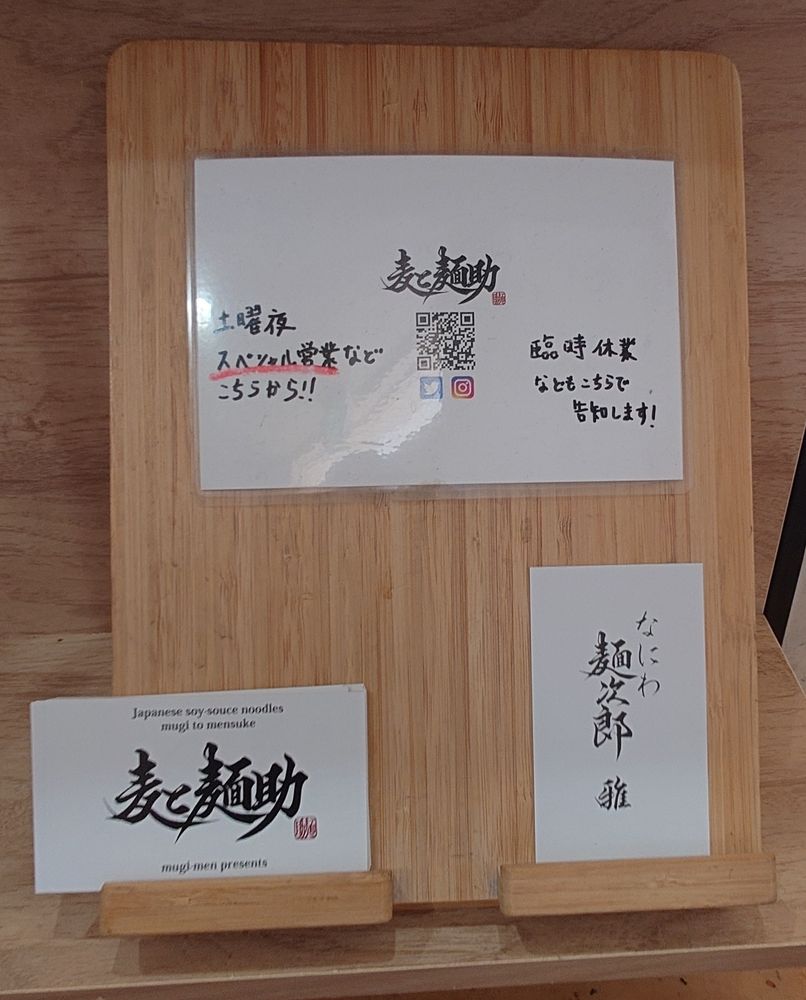 麦と麺助
土曜夜
スペシャル営業など
こちらから!!
臨時休業
などもこちらで
告知します!
Japanese soy-souce noodles
mugi to mensuke
麦と麺助
mugi-men presents
なにわ
麺次郎
雅